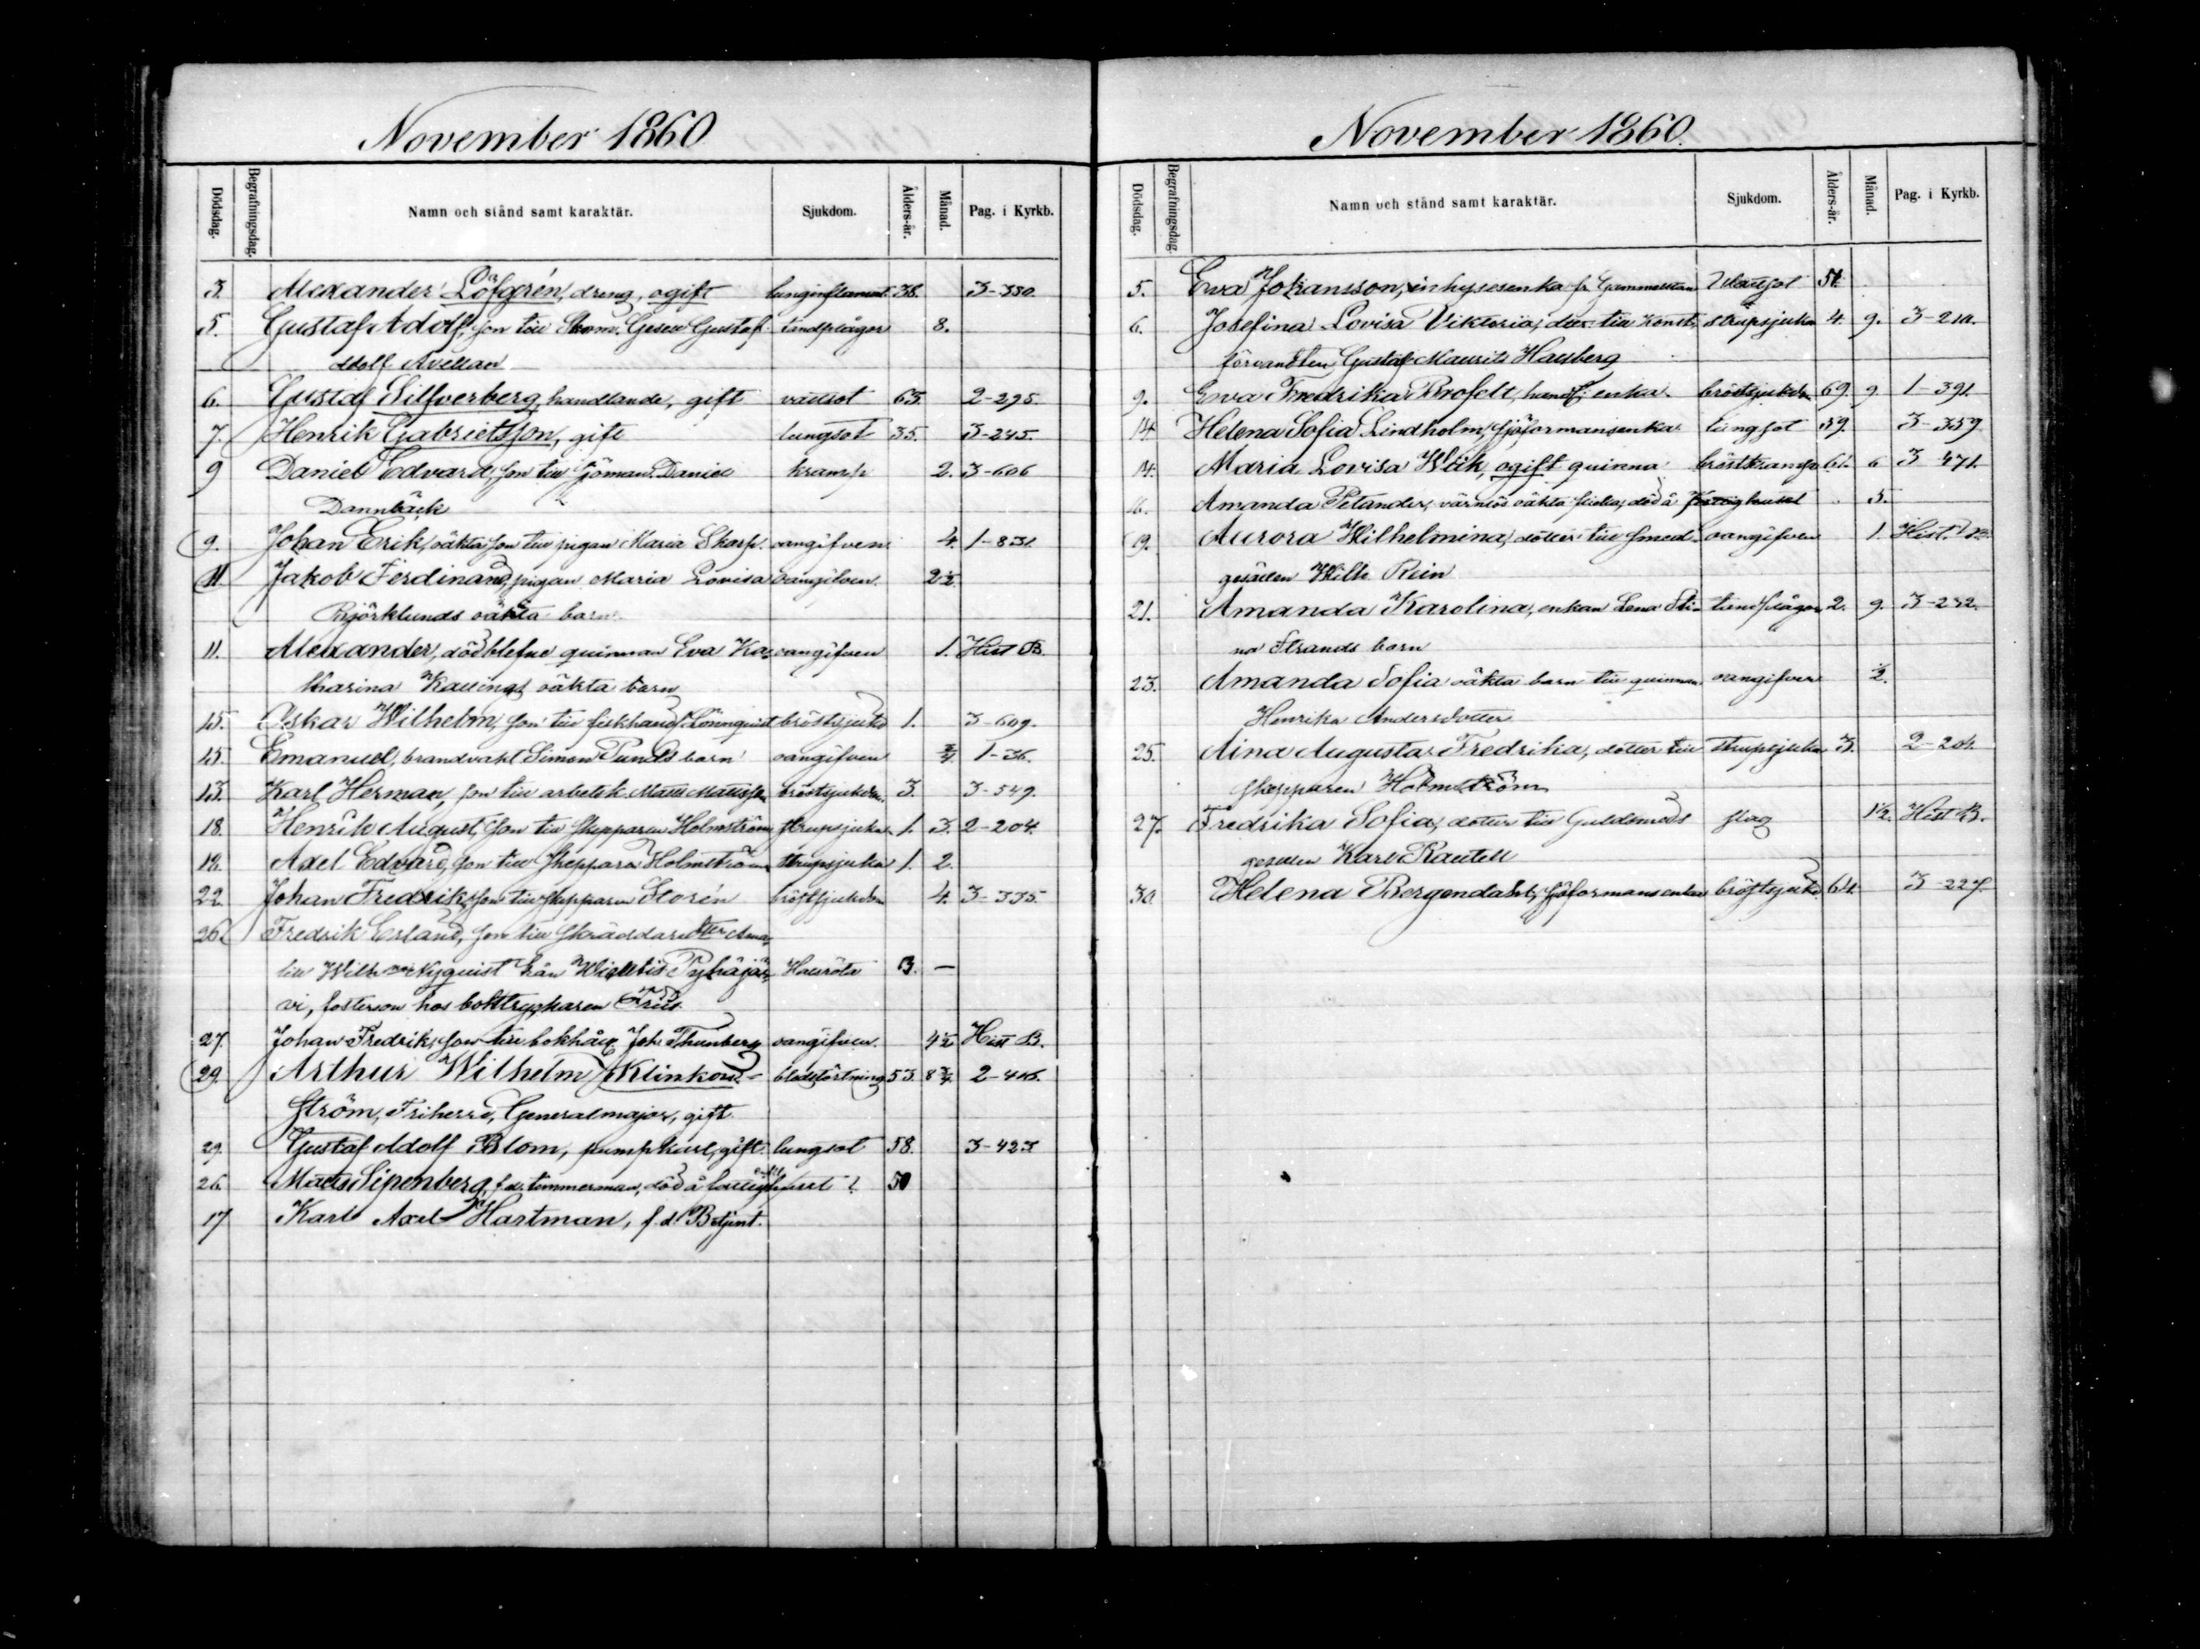 November 1860
Dödsdag. Begrafningsdag. Namn och stånd samt karaktär. Sjukdom. Ålders-år. Månad. Pag. i Kyrkb.
3. Alexander Löfgrén, dreng, ogift 38. 3-330.
5. Gustaf Adolf, son till Skom. Gesell Gustaf tandplågor 8.
Adolf Avellan
6. Gustaf Silfverberg, handlande, gift vattsot 63. 2-295.
7. Henrik Gabrielsson, gift lungsot 35. 3-245.
9 Daniel Edvard, son till Sjöman. Daniel kramp 2. 3-606
Dannbäck
9. Johan Erik, oäkta son till pigan Maria Skarp. oangifven 4. 1-831.
11. Jakob Ferdinand, pigan Maria Lovisa oangifven 2½
Björklunds oäkta barn
11. Alexander, dödblefne quinnan Eva Ka- oangifven 1. Hist B.
tharina Kallings oäkta barn
15. Oskar Wilhelm, son till fiskhandl. Lönnquist bröstsjukd 1. 3-609.
15. Emanuel, brandvakt Simon Punds barn oangifven ¾. 1-36.
13. Karl Herman, son till arbetsk. Matts Mattsson bröstsjukdom 3. 3-549.
18. Henrik August, son till Skepparen Holmström strupsjuka 1. 3. 2-204.
12. Axel Edvard, son till Skeppare Holmström strupsjuka 1. 2.
22. Johan Fredrik, son till Skepparen Storén bröstsjukdom 4. 3-335.
26. Fredrik Erland, son till Skräddare
till Wilh Nyquist från Wichtis Pyhäjär-
vi, fosterson hos boktryckaren
27. Johan Fredrik, son till bokhåll Joh. Thunberg oangifven. 4½ Hist B.
29. Arthur Wilhelm Klinkow- blodstörtning 53. 8¾.
ström, Friherre, Generalmajor, gift.
29. Gustaf Adolf Blom, pumpkarl, gift. lungsot 58. 3-423
26. Matts Sipenberg, f.d. timmerman, död å fattighuset 50
17 Karl Axel Hartman, f.d. Betjent.
November 1860.
Dödsdag. Begrafningsdag Namn och stånd samt karaktär. Sjukdom. Ålders-år. Månad. Pag. i Kyrkb.
5. Eva Johansson, inhysesenka fr. Gammelstan
6. Josefina Lovisa Viktoria, dtr. till Konst- strupsjuka 4. 9. 3-210.
förvandten Gustaf Maurits Hallberg
9. Eva Fredrika Brofelt, handl. enka. bröstsjukdom 69. 9. 1-391.
14 Helena Sofia Lindholm, sjöformansenka lungsot 59. 3-359
14. Maria Lovisa Wiik, ogift quinna bröstkramp 61. 6 3-471.
16. Amanda Petander, värnlös oäkta flicka, död å fattighuset 5.
19. Aurora Wilhelmina, dotter till smed- oangifven 1. Hist. B.
gesällen Wilh. Rein
21. Amanda Karolina, enkan Lena Sti- tandplågor 2. 9. 3-232.
na Strands barn
23. Amanda Sofia oäkta barn till quinnan oangifven ½.
Henrika Andersdotter
25. Aina Augusta Fredrika, dotter till strupsjuka 3. 2-204.
Skepparen Holmström
27. Fredrika Sofia, dotter till Guldsmeds slag 1½. Hist B.
gesällen Karl Rautell
30. Helena Bergendahl, sjöformans enka bröstsjukd. 64. 3-227.